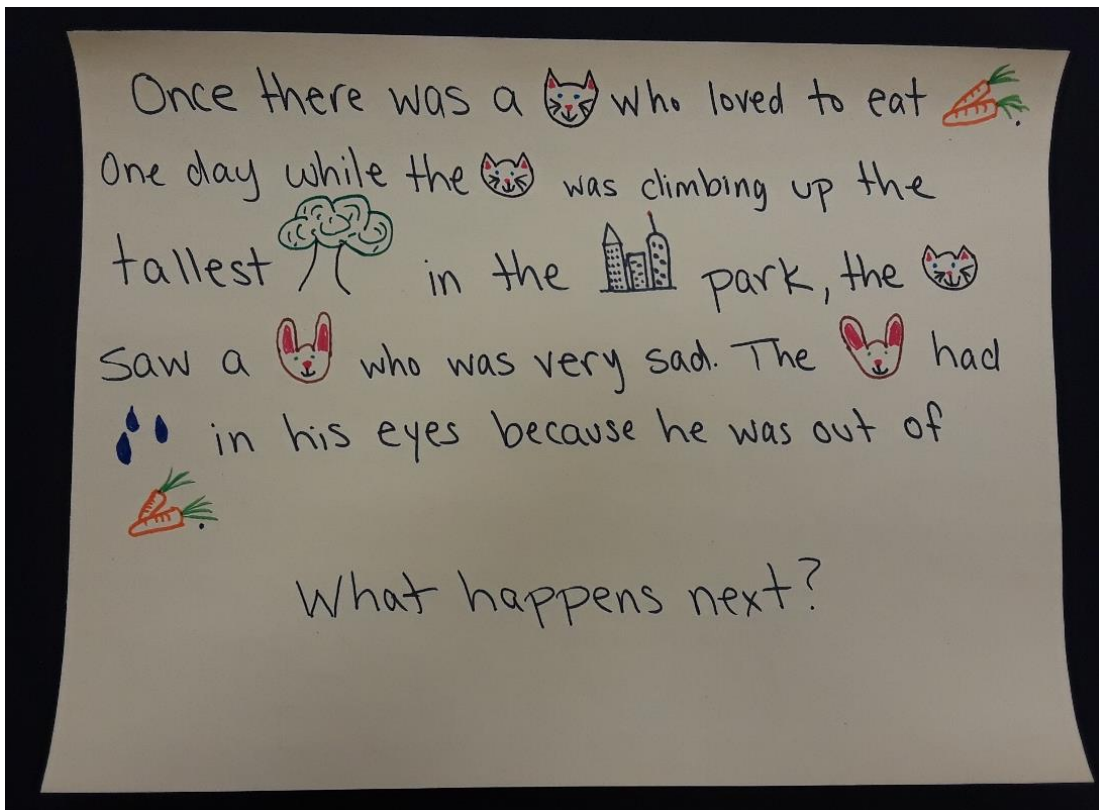 Once there was a who loved to eat .
One day while the was climbing up the
tallest in the park, the
saw a who was very sad. The had
in his eyes because he was out of
.
What happens next?